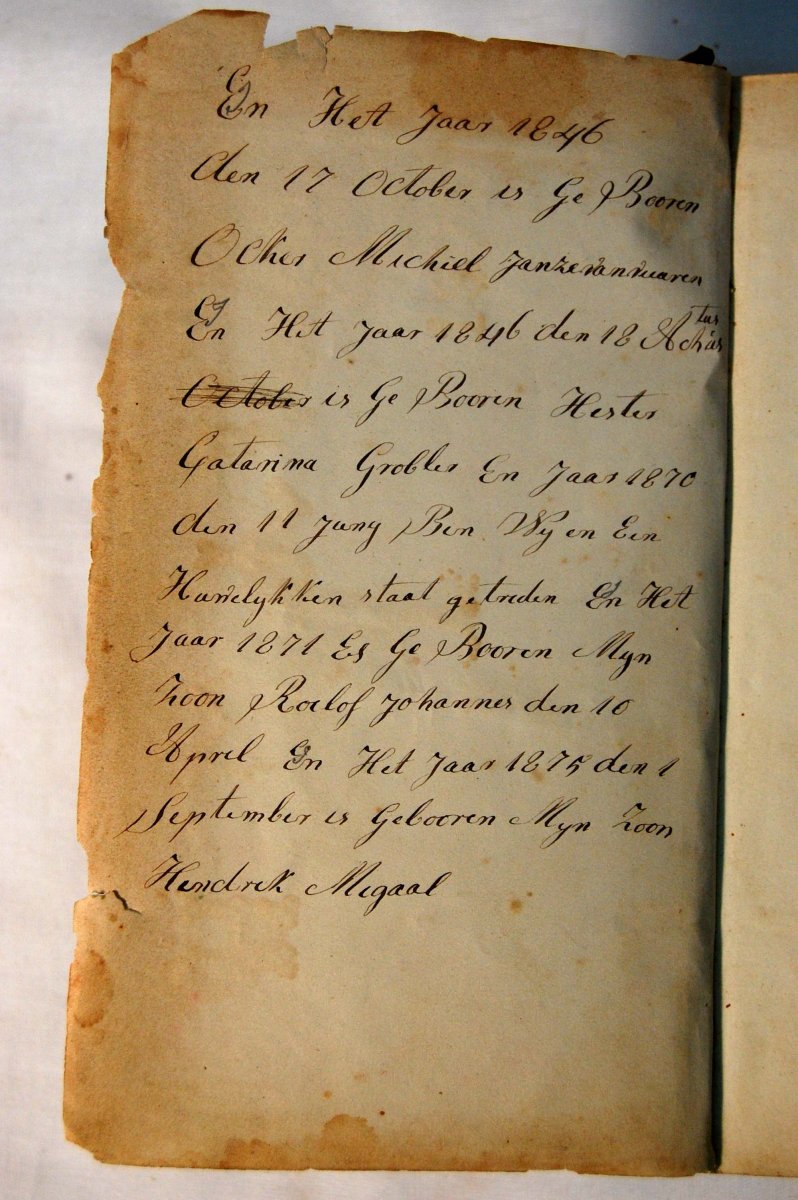 En Het Jaar 1846
den 17 October is Ge Booren
Ocker Michiel Janzevanvuaren
En Het Jaar 1846 den 18
October is Ge Booren Hester
Catarina Grobler En Jaar 1870
den 11 Juny Ben Wy en Een
Huwelykken staat getreden En Het
Jaar 1871 Es Ge Booren Myn
Zoon Roelof Johannes den 10
April En Het Jaar 1875 den 1
September is Gebooren Myn Zoon
Hendrik Megaal